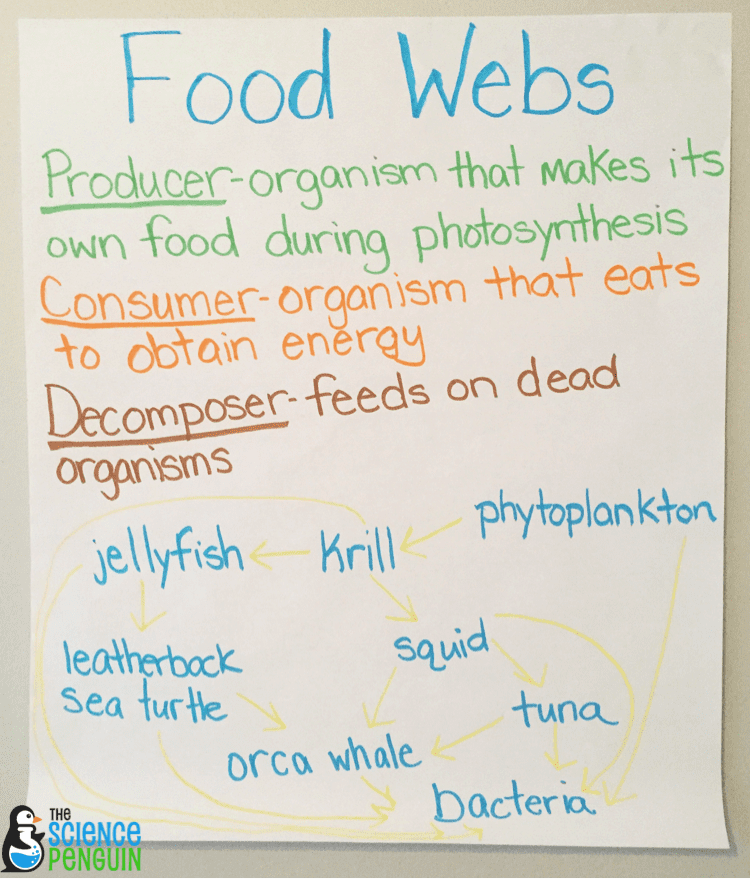 Food Webs
Producer-organism that makes its
own food during photosynthesis
Consumer-organism that eats
to obtain energy
Decomposer-feeds on dead
organisms
phytoplankton
jellyfish krill
leatherback squid
sea turtle tuna
orca whale
bacteria
THE
SCIENCE
PENGUIN